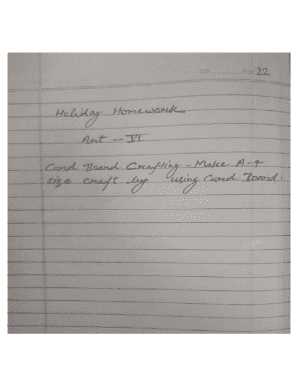 22
Holiday Homework
Art - VI
Card Board Crafting - Make A-4
size craft by using Card Board.